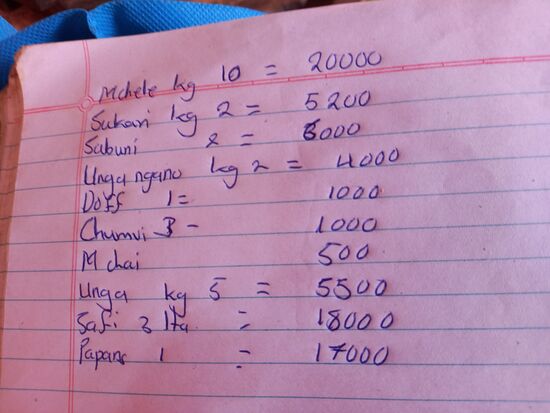 Mchele kg 10 = 20000
Sukari kg 2 = 5200
Sabuni 2 = 6000
Unga ngano kg 2 = 4000
Doff 1 = 1000
Chumvi 3 - 1000
Mchai 500
Unga kg 5 = 5500
Safi 3 lta = 18000
1 = 17000